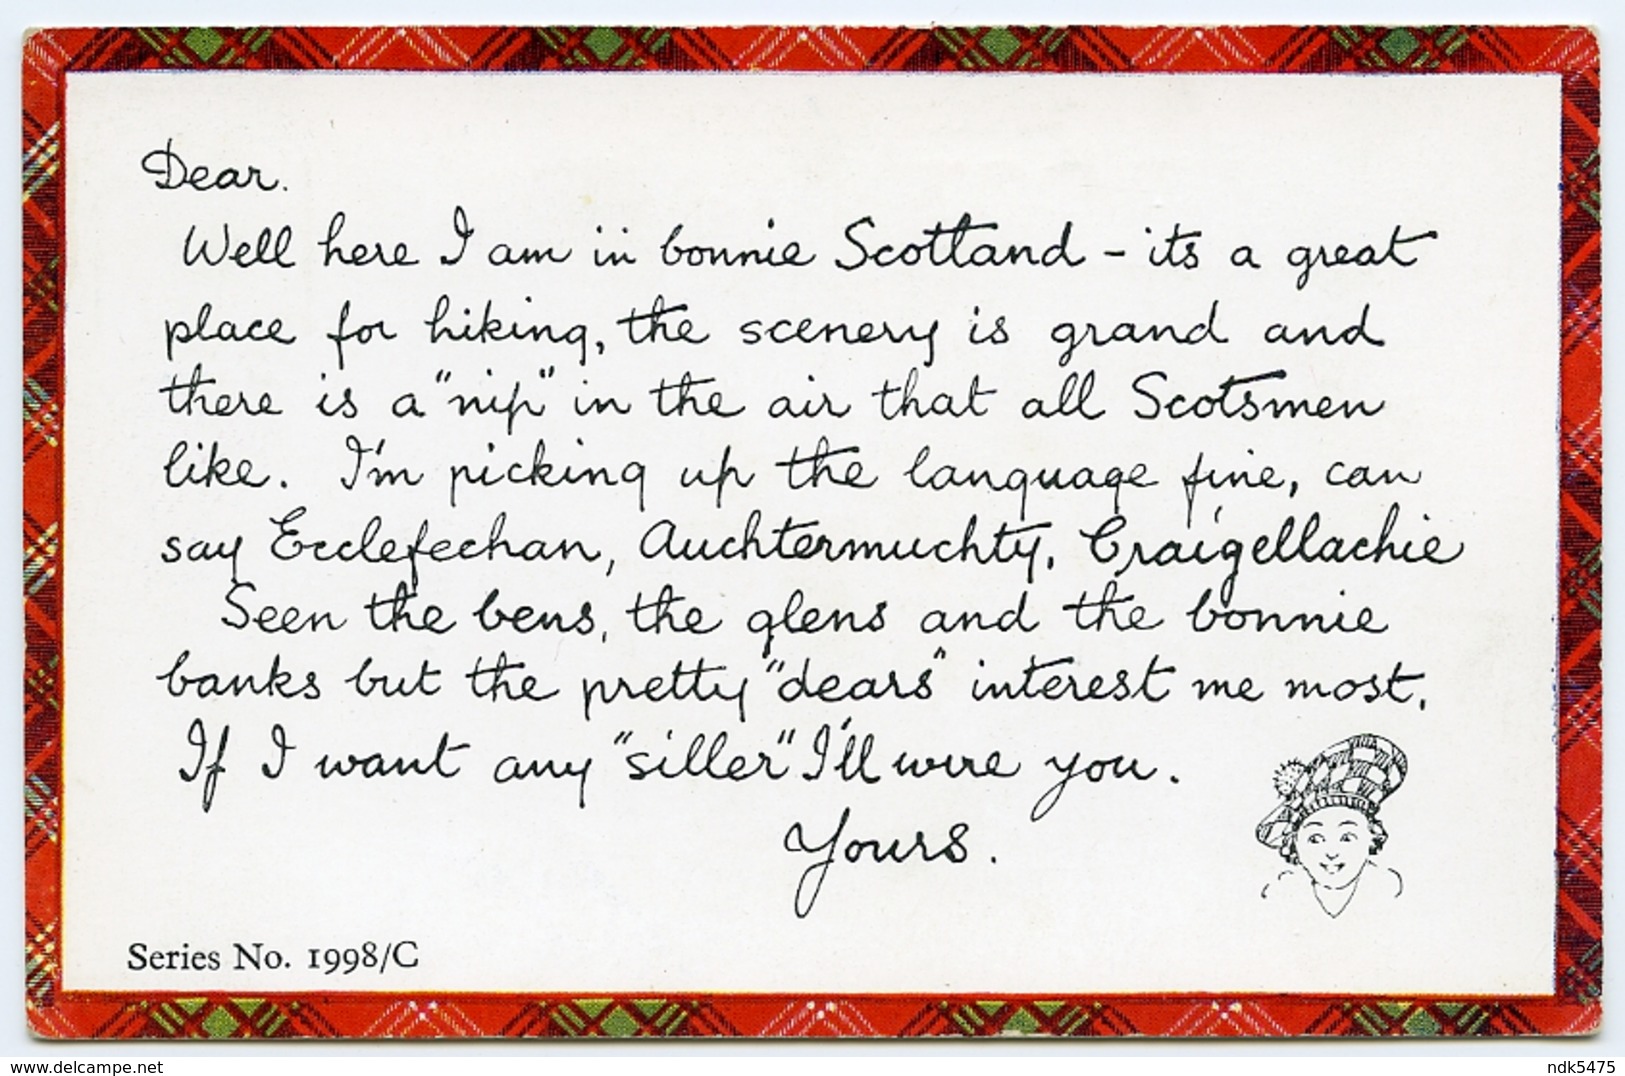 Dear.
Well here I am in bonnie Scotland - its a great
place for hiking, the scenery is grand and
there is a "nip" in the air that all Scotsmen
like. I'm picking up the language fine, can
say Ecclefechan, Auchtermuchty, Craigellachie
Seen the bens, the glens and the bonnie
banks but the pretty "dears" interest me most.
If I want any "siller" I'll wire you.
Yours.
Series No. 1998/C
www.delcampe.net
ndk5475